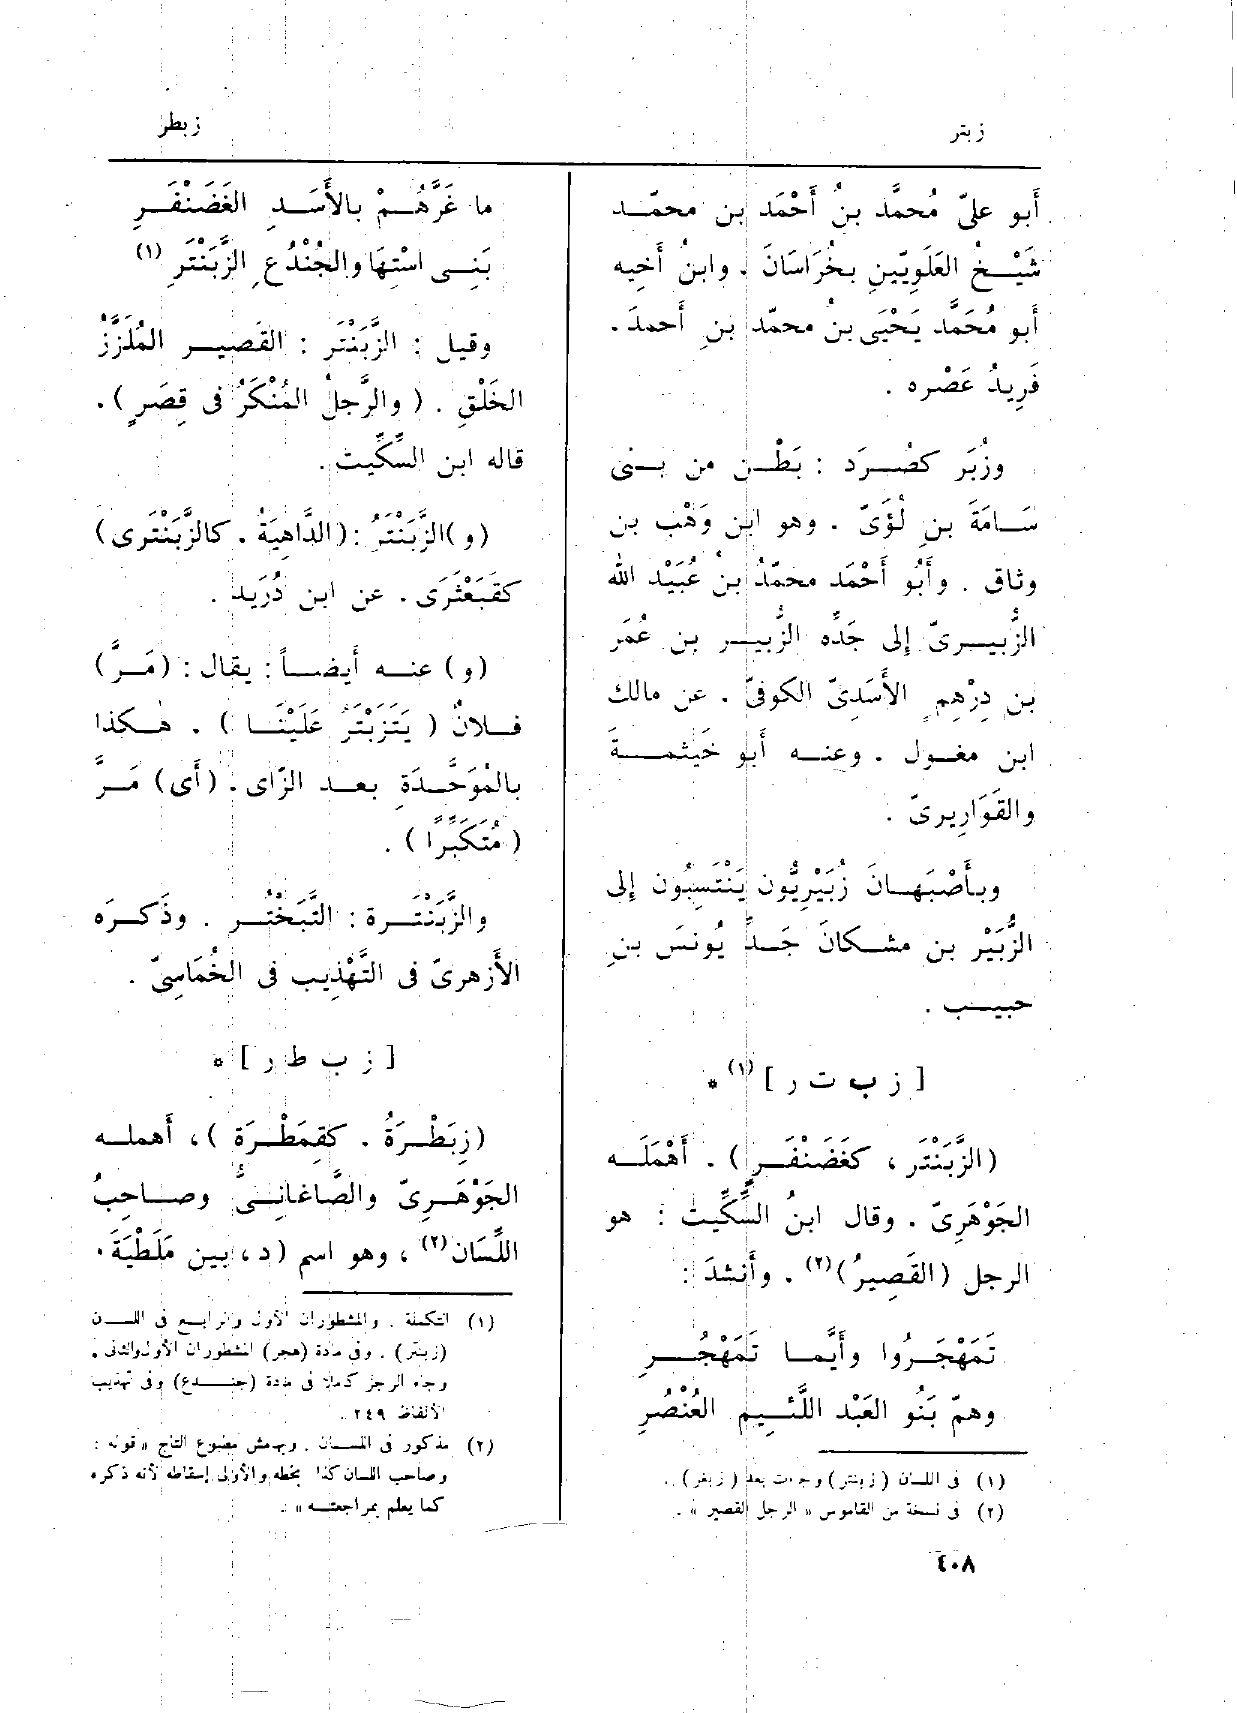 زبتر
زبطر
أبو علىّ مُحمَّد بنُ أَحْمَد بن محمّد
شَيْخُ العَلَوِيّينِ بخُرَاسَانَ ، وابنُ أَخِيه
أبو مُحَمَّد يَحْيَى بنُ محمّد بنِ أحمدَ .
فَرِيدُ عَصْره .
وزُبَر كصُرَد : بَطْن من بنى
سَامَةَ بنِ لُؤَىّ . وهو ابن وَهْب بن
وثاق . وأَبُو أَحْمَد محمّدُ بنُ عُبَيْد الله
الزُّبيرىّ إلى جَدِّه الزُّبير بن عُمَر
بن دِرْهِمٍ الأَسَدِىّ الكوفىّ . عن مالك
ابن مغول . وعنه أَبو خَيثمة
والقَوَارِيرىّ .
وبأَصْبَهانَ زُبَيْرِيُّون يَنْتَسِبُون إلى
الزُّبَيْر بن مشكانَ جَدِّ يُونسَ بنِ
حبيب .
[ ز ب ت ر ] (١) *
(الزَّبَنْتَر ، كغَضَنْفَرٍ) . أَهْمَلَه
الجَوْهَرِىّ . وقال ابنُ السِّكِّيت : هو
الرجل (القَصِيرُ)(٢) . وأَنشدَ :
تَمَهْجَرُوا وأَيُّما تَمَهْجُرِ
وهمْ بَنُو العَبْد اللَّئيم العُنْصُرِ
(١) فى اللسان (زبنتر) وجاءت بعد (زبغر) .
(٢) فى نسخة من القاموس « الرجل القصير » .
ما غَرَّهُمْ بالأَسَدِ الغَضَنْفَرِ
بَنِى اسْتِهَا والجُنْدُعِ الزَّبَنْتَرِ (١)
وقيل : الزَّبَنْتَر : القَصير المُلَزَّزُ
الخَلْقِ . ( والرَّجلُ المُنْكَرُ فى قِصَرٍ ) .
قاله ابن السِّكِّيت .
(و)الزَّبَنْتَرُ :(الدَّاهِيَةُ . كالزَّبَنْتَرى)
كقَبَعْثَرَى . عن ابن دُرَيد .
(و) عنه أَيضاً : يقال : (مَرَّ)
فلانٌ ( يَتَزَبْتَرُ عَلَيْنَا ) . هكذا
بالمُوَحَّدَةِ بعد الزّاى . (أى) مَرَّ
(مُتَكَبِّرًا) .
والزَّبَنْتَرة : التَّبَخْتُر . وذَكَرَه
الأَزهرىّ فى التَّهْذِيب فى الخُمَاسِىّ .
[ ز ب ط ر ] *
(زِبَطْرَةُ . كقِمَطْرَة ) ، أَهمله
الجَوْهَرِىّ والصَّاغانِىُّ وصاحِبُ
اللِّسَان(٢) ، وهو اسم (د ، بين مَلَطْيَةَ .
(١) التكملة . والمشطوران الأول والرابع فى اللسان
(زبنتر) . وفى مادة (هجر) المشطوران الأول والثانى .
وجاء الرجز كاملا فى مادة (جندع) وفى تهذيب
الألفاظ ٢٤٩ .
(٢) مذكور فى اللسان . وبهامش مطبوع التاج « قوله :
وصاحب اللسان كذا بخطه والأولى إسقاطه لأنه ذكره
كما يعلم بمراجعته » .
٤٠٨